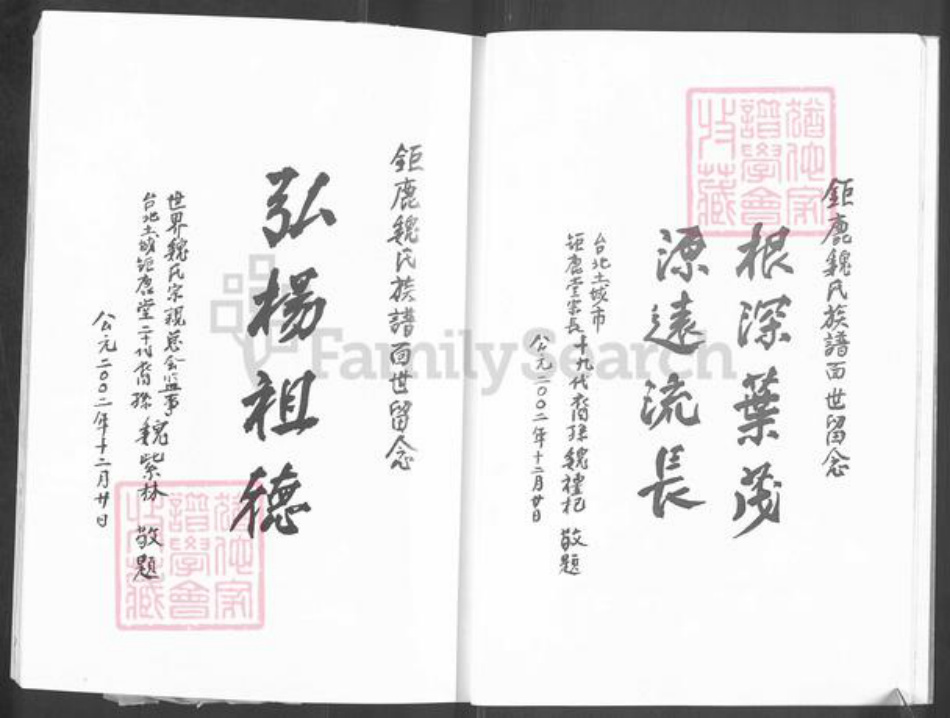 鉅鹿魏氏族譜面世留念
根深葉茂
源遠流長
台北土城市
鉅鹿堂宗長十九代裔孫魏禮杞 敬題
公元二〇〇二年十二月廿日
鉅鹿魏氏族譜面世留念
弘楊祖德
世界魏氏宗親总会监事
台北土城鉅鹿堂二十代裔孫 魏紫林 敬題
公元二〇〇二年十二月廿日
譜學會
收藏
譜學會
收藏
FamilySearch